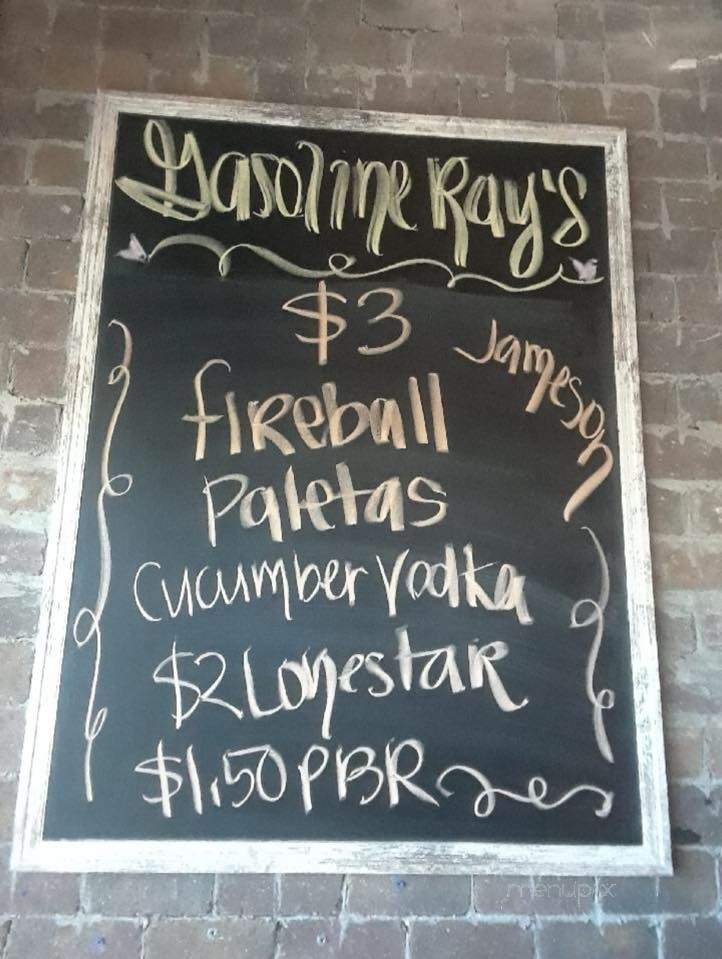 Gasoline Ray's
$3
Jameson
fireball
Paletas
Cucumber Vodka
$2 Lonestar
$1.50 PBR
menupix